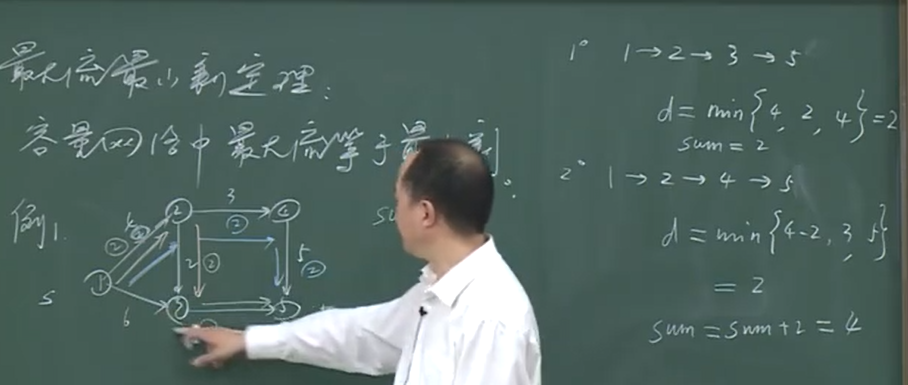 最大流最小割定理:
容量网络中最大流等于最小割。
例1.
4
②
②
3
②
2
②
5
②
6
①
②
③
④
⑤
S
1° 1→2→3→5
d=min{4,2,4}=2
sum=2
2° 1→2→4→5
d=min{4-2,3,5}
=2
sum=sum+2=4